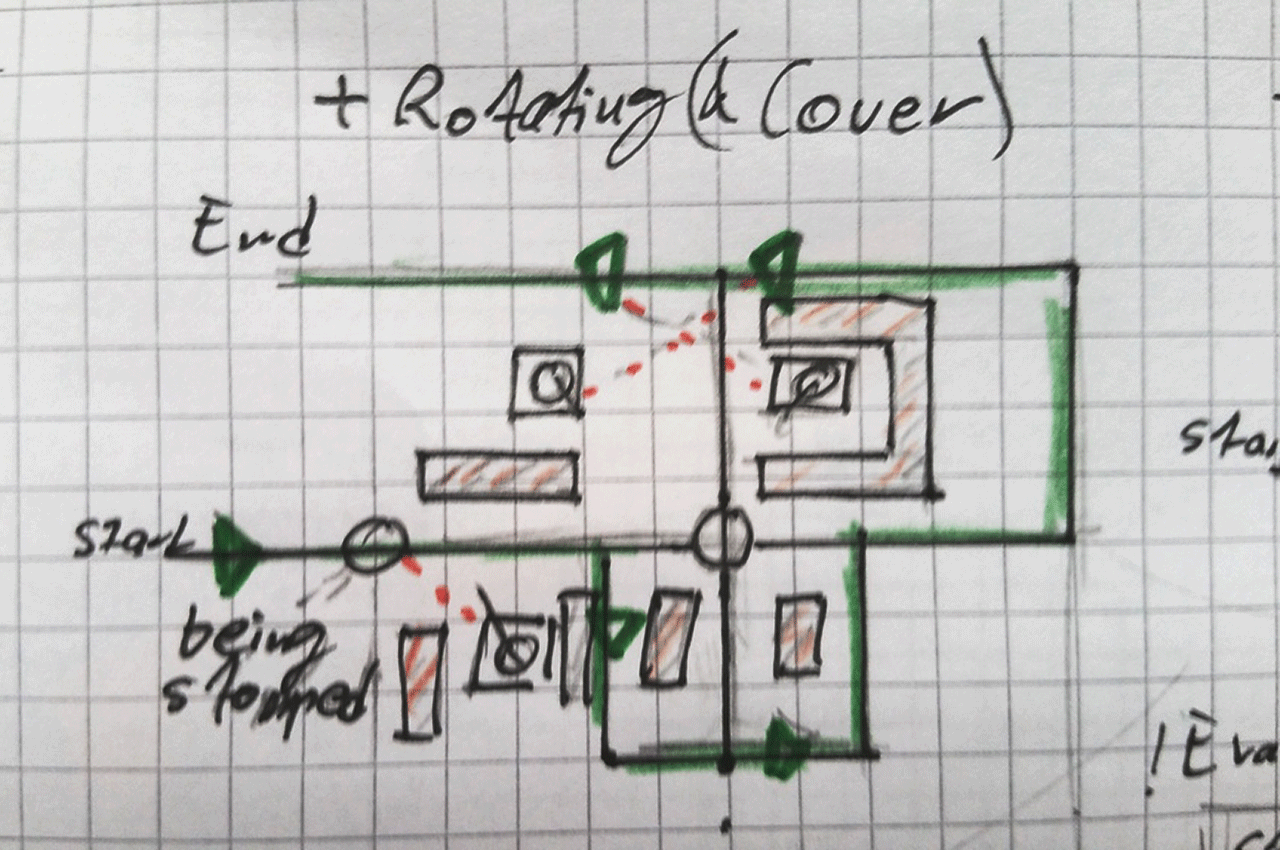 + Rotating (& Cover)
End
Start
being
stopped
! Eva